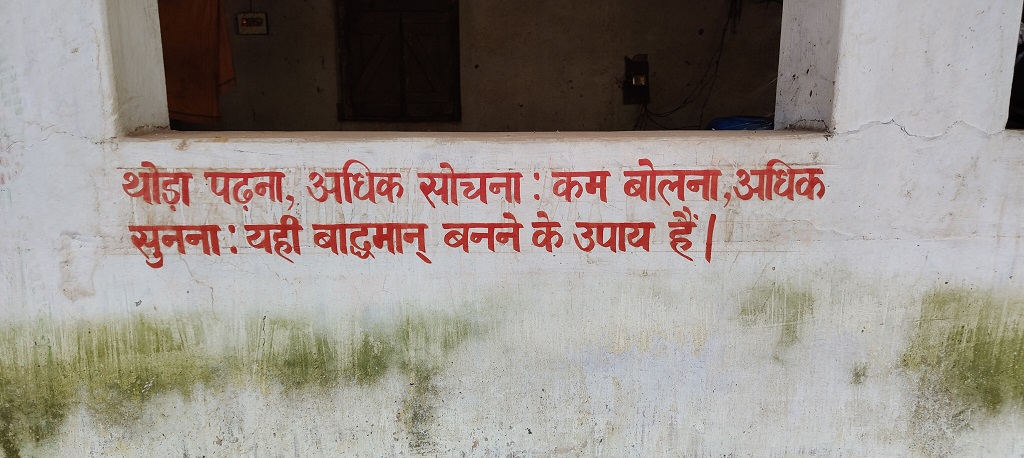 थोड़ा पढ़ना, अधिक सोचना : कम बोलना, अधिक
सुनना : यही बाद्धमान् बनने के उपाय हैं।